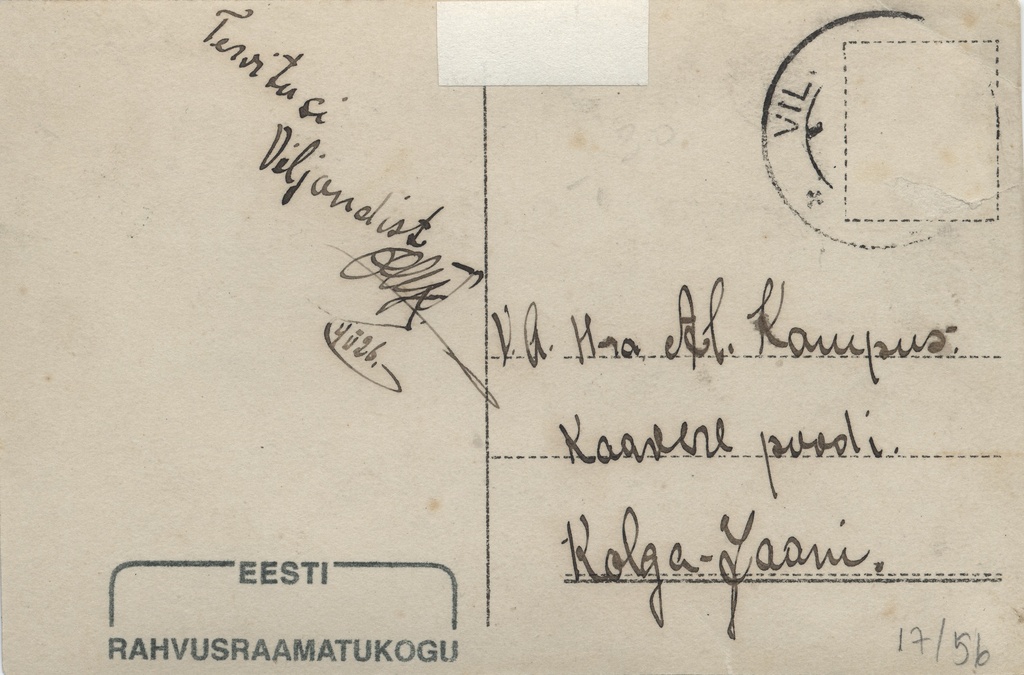 Tervitusi
Viljandist
VIL.
V. A. H-ra Al. Kampus.
Kaavere poodi.
Kolga-Jaani.
EESTI
RAHVUSRAAMATUKOGU
17/56